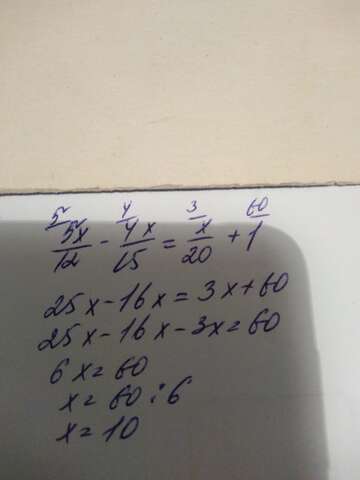 5 4 3 60
5x/12 - 4x/15 = x/20 + 1
25x-16x=3x+60
25x-16x-3x=60
6x=60
x=60:6
x=10